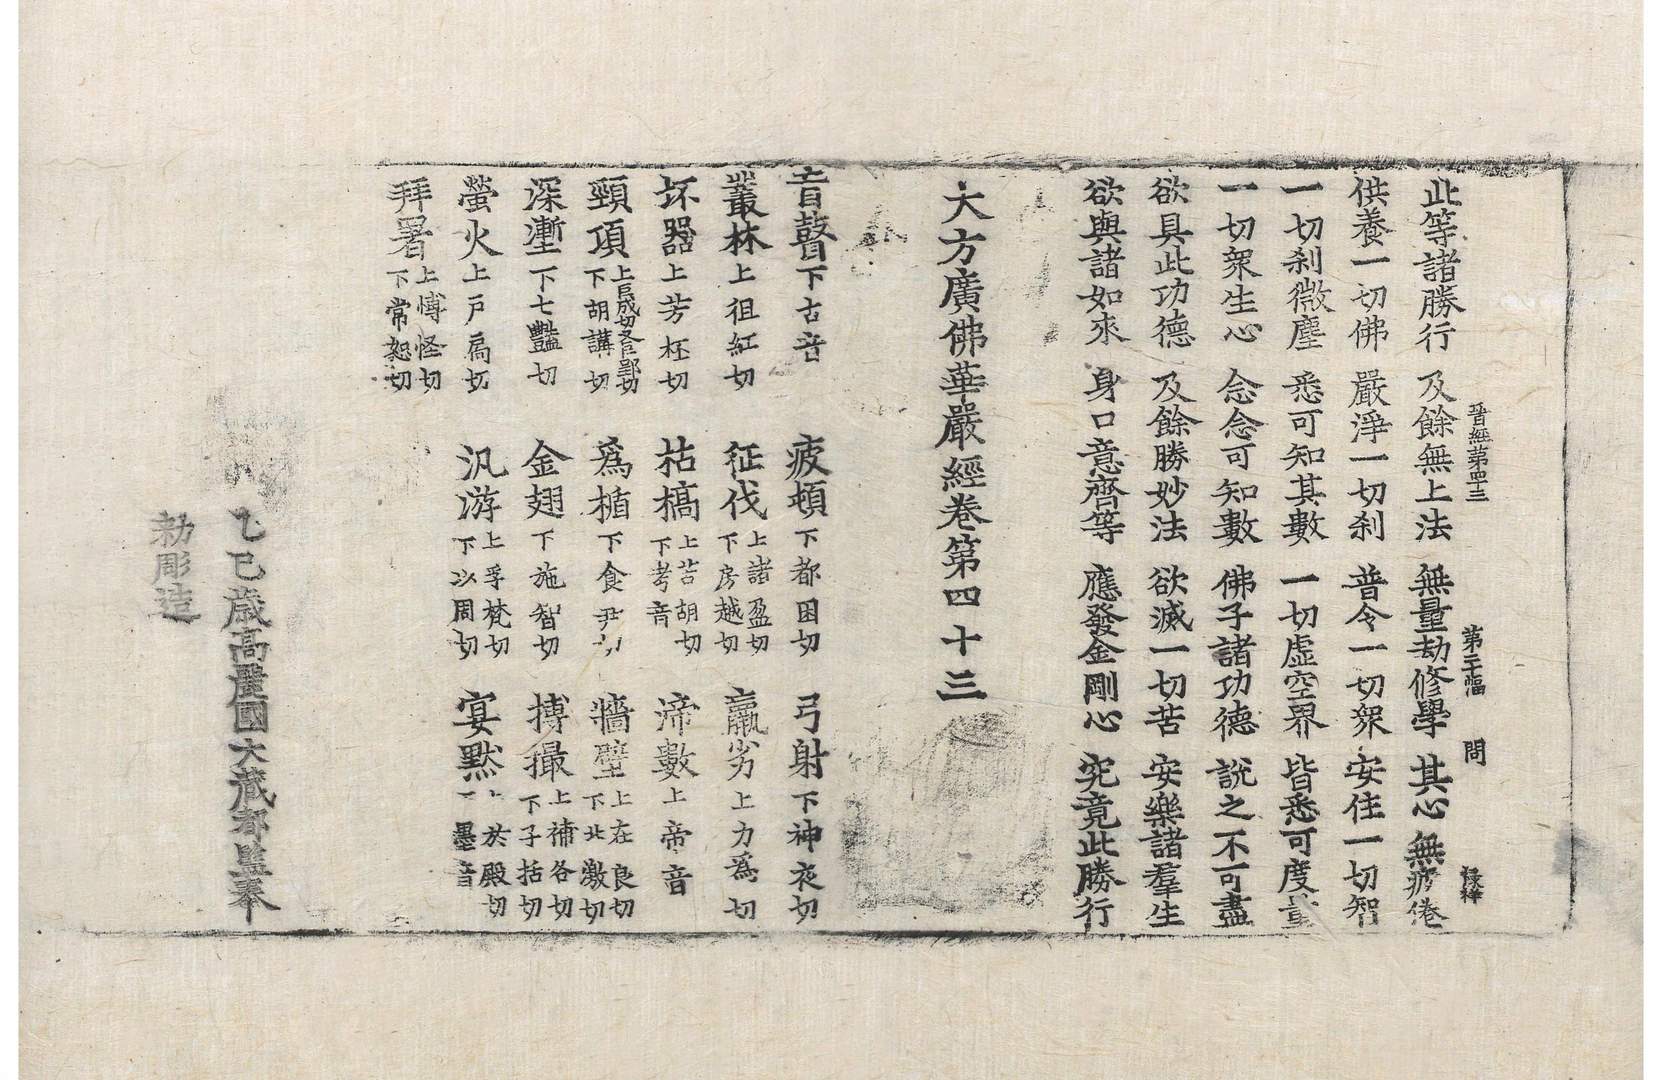 晉經第四十三 第二十幅 問 祿禪
此等諸勝行 及餘無上法 無量劫修學 其心無疲倦
供養一切佛 嚴淨一切刹 普令一切衆 安住一切智
一切刹微塵 悉可知其數 一切虛空界 皆悉可度量
一切衆生心 念念可知數 佛子諸功德 說之不可盡
欲具此功德 及餘勝妙法 欲滅一切苦 安樂諸羣生
欲與諸如來 身口意齊等 應發金剛心 究竟此勝行
大方廣佛華嚴經卷第四十三
盲瞽下古音 疲頓下都困切 弓射下神夜切
叢林上徂紅切 征伐上諸盈切下房越切 羸劣上力爲切
坏器上芳坯切 枯槁上苦胡切下考音 渧數上帝音
頸頂上巨成切又吉郢切下胡講切 爲楯下食尹切 牆壁上在良切下北激切
深塹下七豔切 金翅下施智切 搏撮上補各切下子括切
螢火上戸扃切 汎游上孚梵切下以周切 宴默上於殿切下墨音
拜署上愽怪切下常恕切
乙巳歲高麗國大藏都監奉
勑彫造